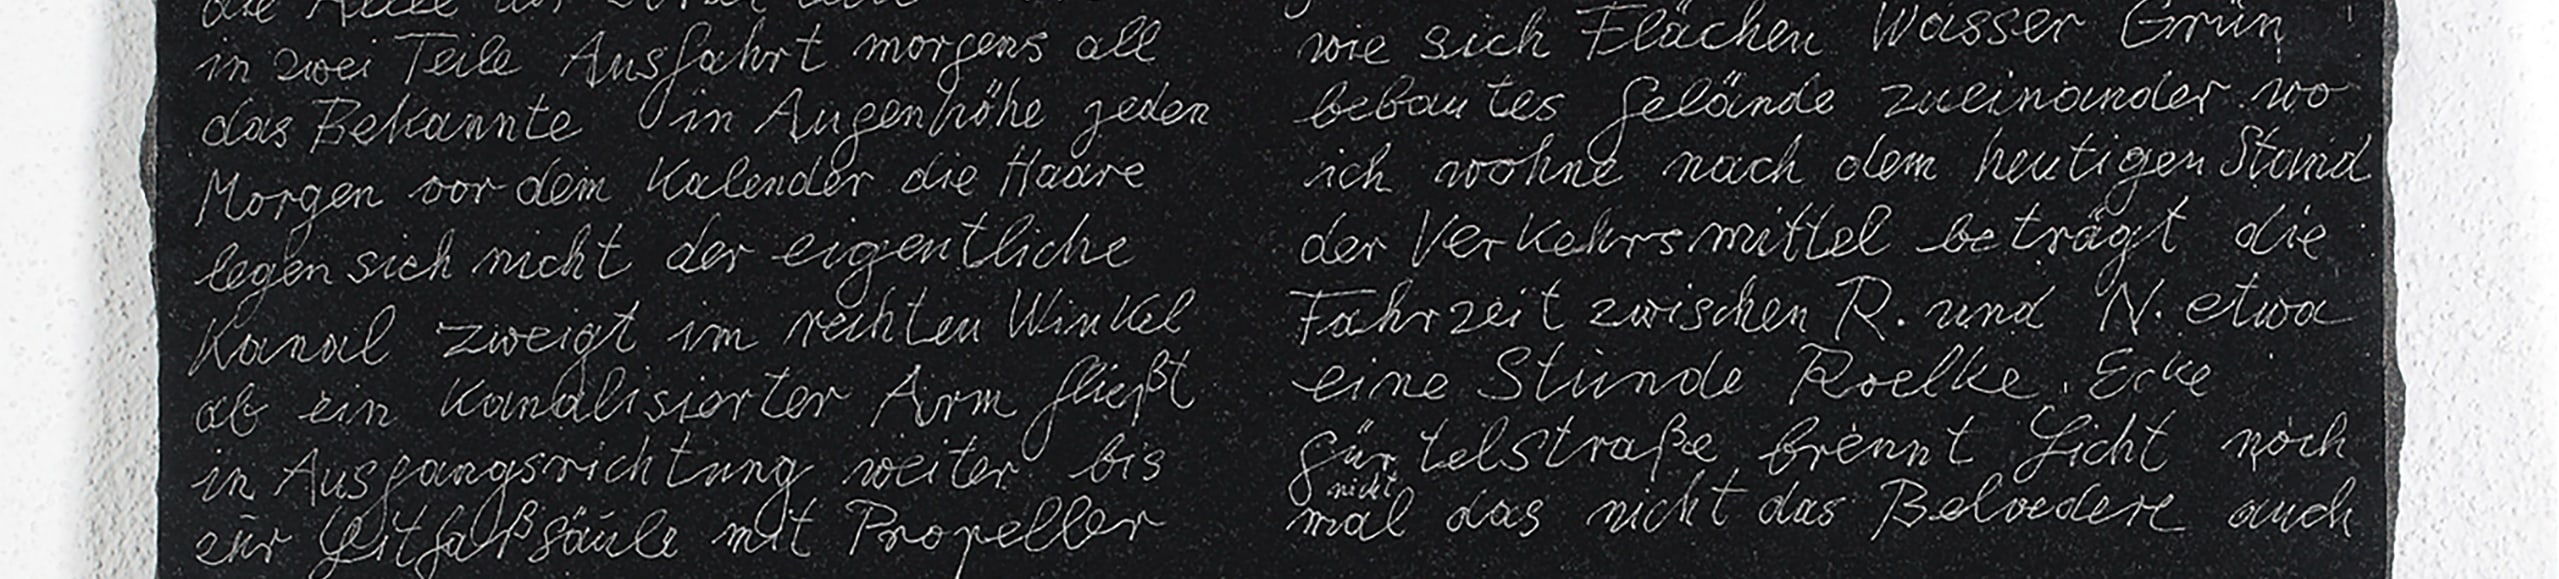 in zwei Teile Ausfahrt morgens all
das Bekannte in Augenhöhe jeden
Morgen vor dem Kalender die Haare
legen sich nicht der eigentliche
Kanal zweigt im rechten Winkel
ab ein kanalisierter Arm fließt
in Ausgangsrichtung weiter bis
zur Litfaßsäule mit Propeller
wie sich Flächen Wasser Grün
bebautes Gelände zueinander wo
ich wohne nach dem heutigen Stand
der Verkehrsmittel beträgt die
Fahrzeit zwischen R. und N. etwa
eine Stunde Roelke Ecke
Gürtelstraße brennt Licht noch
nicht
mal das nicht das Belvedere auch